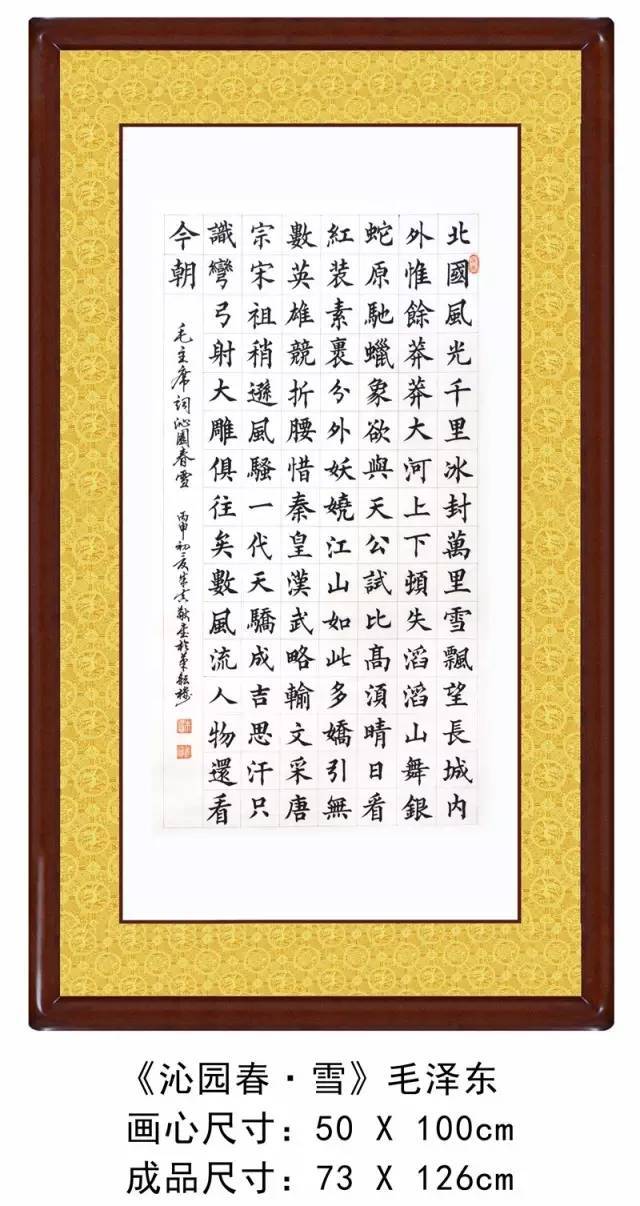 北國風光千里冰封萬里雪飄望長城内
外惟餘莽莽大河上下頓失滔滔山舞銀
蛇原馳蠟象欲與天公試比高須晴日看
紅装素裹分外妖嬈江山如此多嬌引無
數英雄競折腰惜秦皇漢武略輸文采唐
宗宋祖稍遜風騷一代天驕成吉思汗只
識彎弓射大雕俱往矣數風流人物還看
今朝
毛主席詞沁園春雪 丙申初夏
《沁园春·雪》毛泽东
画心尺寸：50 X 100cm
成品尺寸：73 X 126cm